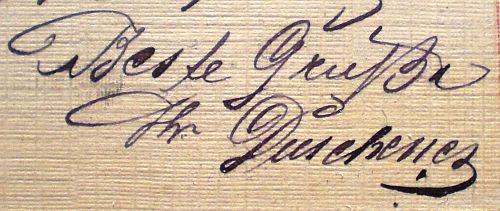 Beste Grüße
Ihr Duschenes